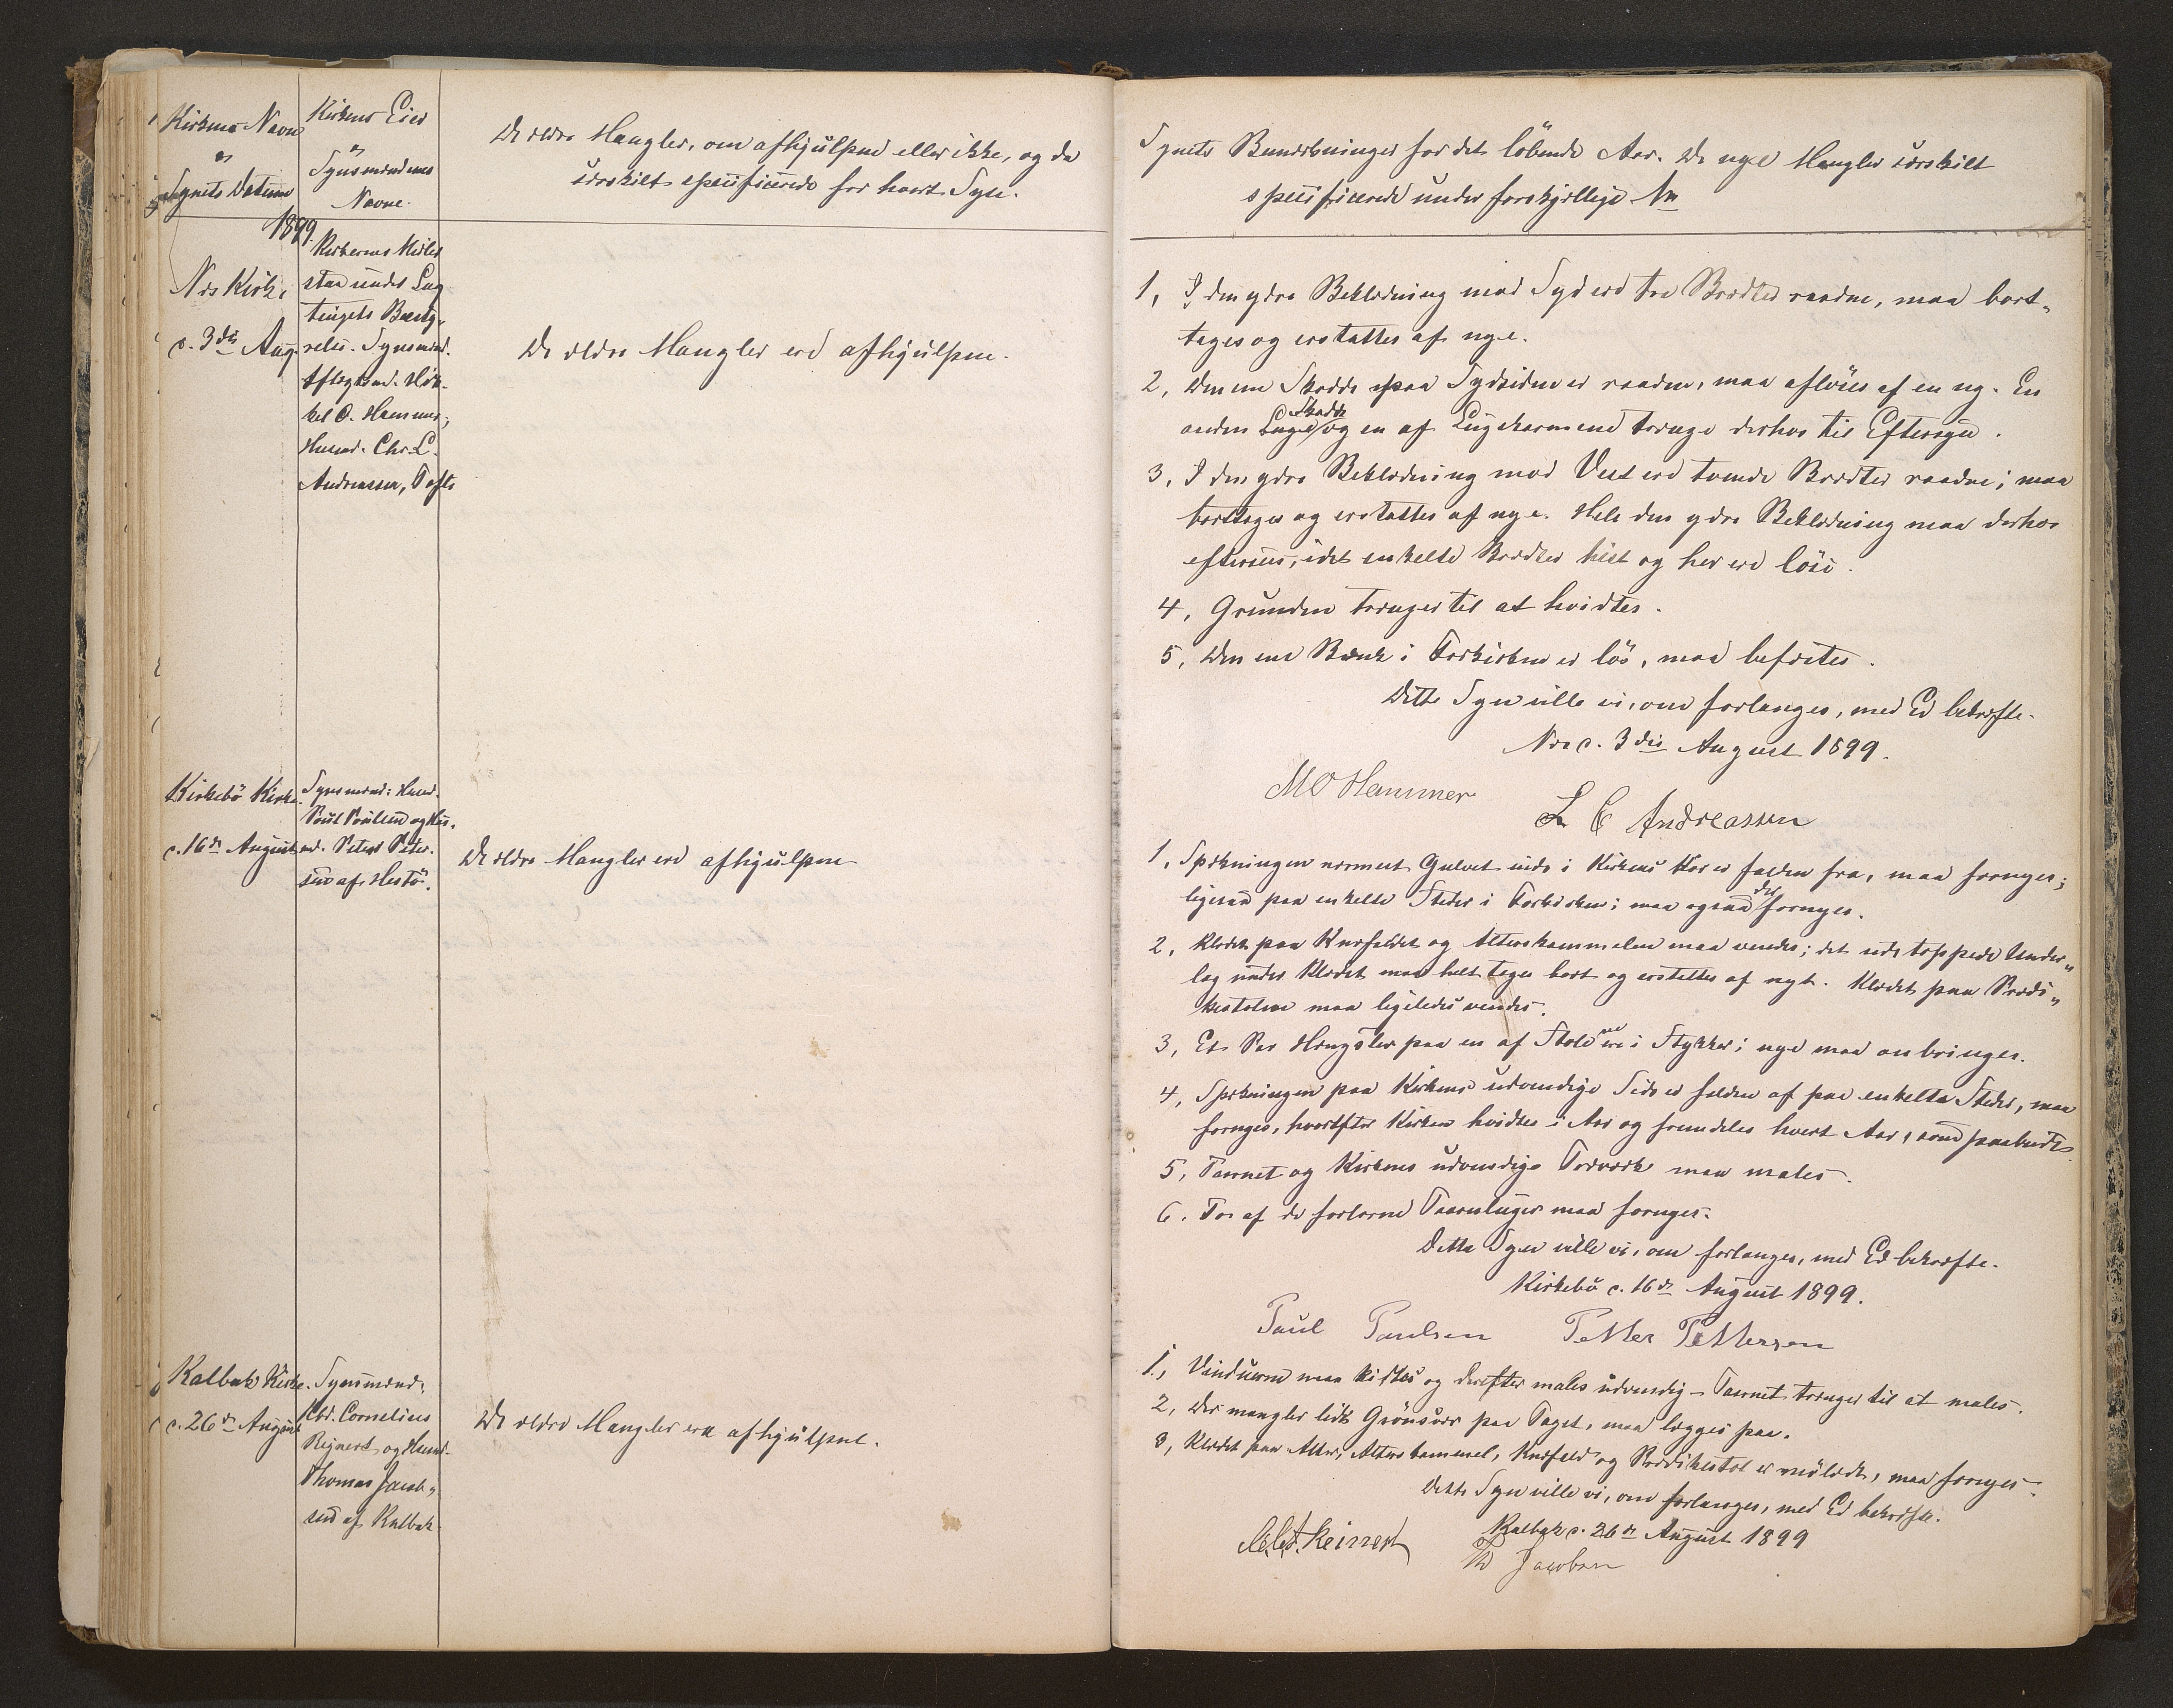 Kirkens Navn
og
Synets Datum
Kirkens Eier
og
Synsmændenes
Navne.
De ældre Mangler, om afhjulpne eller ikke, og da
særskilt specificerede for hvert Syn.
1899.
Nes Kirke,
d. 3die Aug.
Kirkernes Midler
staa under Lag
tingets Besty-
relse. Synsmænd.
Aftægtsmd. Mik-
kel O. Hammer,
Husmd. Chr. L.
Andreassen, Tofte
De ældre Mangler ere afhjulpne.
Kirkebø Kirke.
d. 16de August
Synsmænd: Husmd.
Poul Poulsen og Hus-
md. Peter Peter-
sen af Hestø.
De ældre Mangler ere afhjulpne
Kalbak Kirke.
d. 26de August
Synsmænd:
Kbd. Cornelius
Rejnert og Husmd.
Thomas Jacob-
sen af Kalbak.
De ældre Mangler ere afhjulpne.
Synets Bemærkninger for det løbende Aar. De nye Mangler særskilt
specificerede under forskjellige Nr
1, I den ydre Beklædning mod Syd ere tre Brædter raadne, maa bort-
tages og erstattes af nye.
2, Den ene Skodde paa Sydsiden er raaden, maa afløses af en ny. En
anden Luge Skodde og en af Lugekarmene trænge derhos til Eftersyn.
3, I den ydre Beklædning mod Vest ere tvende Brædter raadne; maa
borttages og erstattes af nye. Hele den ydre Beklædning maa derhos
efterses, idet enkelte Brædter hist og her ere løse.
4, Grunden trænger til at hvidtes.
5, Den ene Bænk i Forkirken er løs, maa befæstes.
Dette Syn ville vi, om forlanges, med Ed bekræfte.
Nes d. 3die August 1899.
M O Hammer
L C Andreassen
1, Spækningen nærmest Gulvet inde i Kirkens Kor er falden fra, maa fornyes;
ligesaa paa enkelte Steder i Forkirken; maa ogsaa der fornyes.
2, Klædet paa Knæfaldet og Alterskammelen maa vendes; det udstoppede Under-
lag under Klædet maa helt tages bort og erstattes af nyt. Klædet paa Prædi-
kestolen maa ligeledes vendes.
3, Et Par Hængsler paa en af Stolene ere i Stykker; nye maa anbringes.
4, Spækningen paa Kirkens udvendige Side er falden af paa enkelte Steder, maa
fornyes, hvorefter Kirken hvidtes i Aar og fremdeles hvert Aar, som paabudt.
5, Taarnet og Kirkens udvendige Træværk maa males.
6. To af de forlorne Taarnluger maa fornyes.
Dette Syn ville vi, om forlanges, med Ed bekræfte.
Kirkebø d. 16de August 1899.
Paul Paulsen Petter Pettersen
1, Vinduerne maa kittes og derefter males udvendig - Taarnet trænger til at males.
2, Der mangler lidt Grønsvær paa Taget, maa lægges paa.
3, Klædet paa Alter, Alterskammel, Knæfald og Prædikestol er mølædt, maa fornyes.
Dette Syn ville vi, om forlanges, med Ed bekræfte.
Kalbak d. 26de August 1899
Reinert
Th Jacobsen